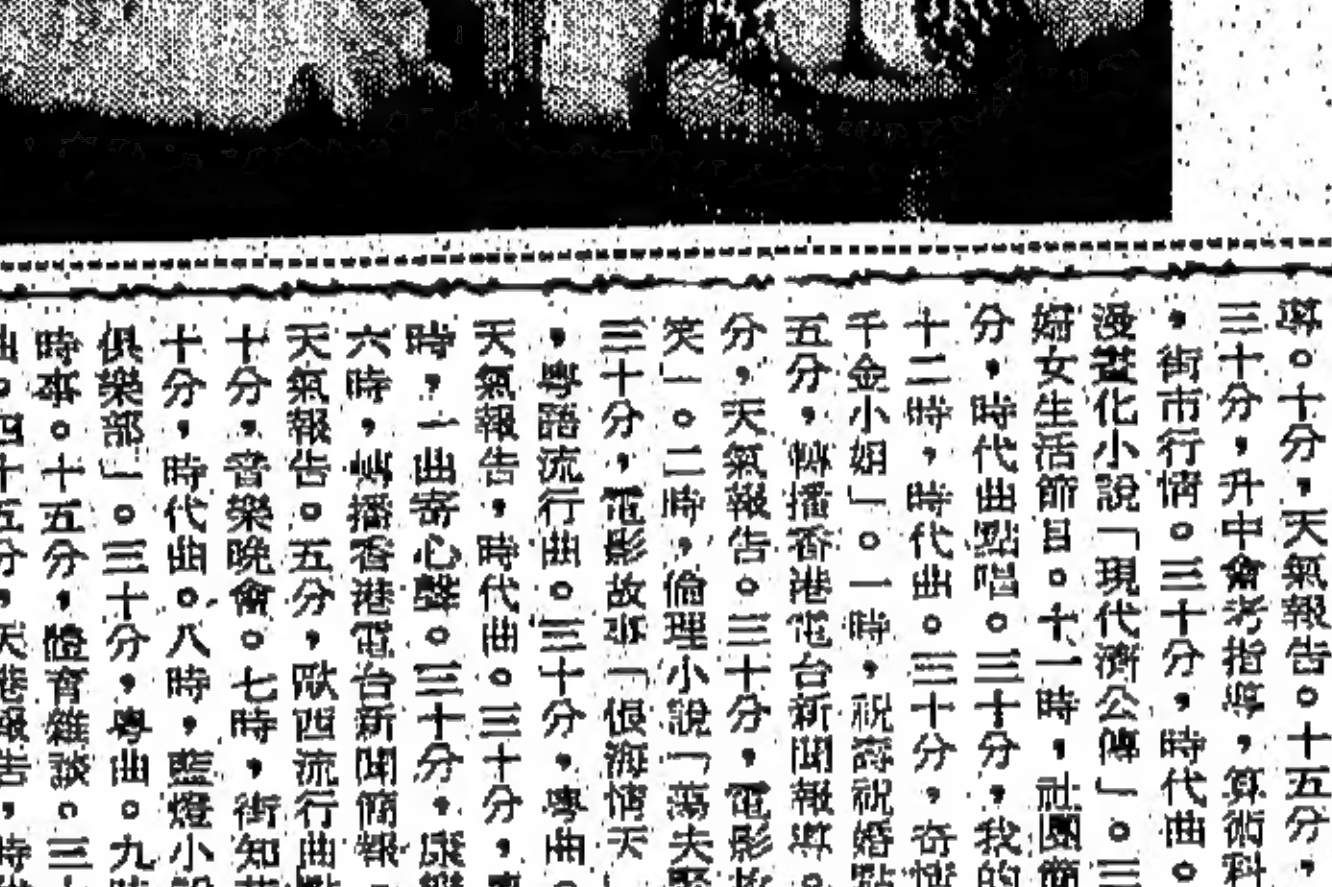 導。十分，天氣報告。十五分，
三十分，升中會考指導，算術科
，街市行情。三十分，時代曲。
漫畫化小說「現代濟公傳」。三
婦女生活節目。十一時，社團節
分，時代曲點唱。三十分，我的
十二時，時代曲。三十分，奇情
千金小姐」。一時，祝壽祝婚點
五分，轉播香港電台新聞報導。
分，天氣報告。三十分，電影故
笑」。二時，倫理小說「蕩夫
三十分，電影故事「恨海情天
，粵語流行曲。三十分，粵曲。
天氣報告，時代曲。三十分，
時，一曲寄心聲。三十分，康樂
六時，轉播香港電台新聞簡報，
天氣報告。五分，歐西流行曲點
十分，音樂晚會。七時，街知
十分，時代曲。八時，藍燈小說
俱樂部」。三十分，粵曲。九時
時事。十五分，體育雜談。三十
曲。四十五分，天港報告，時代